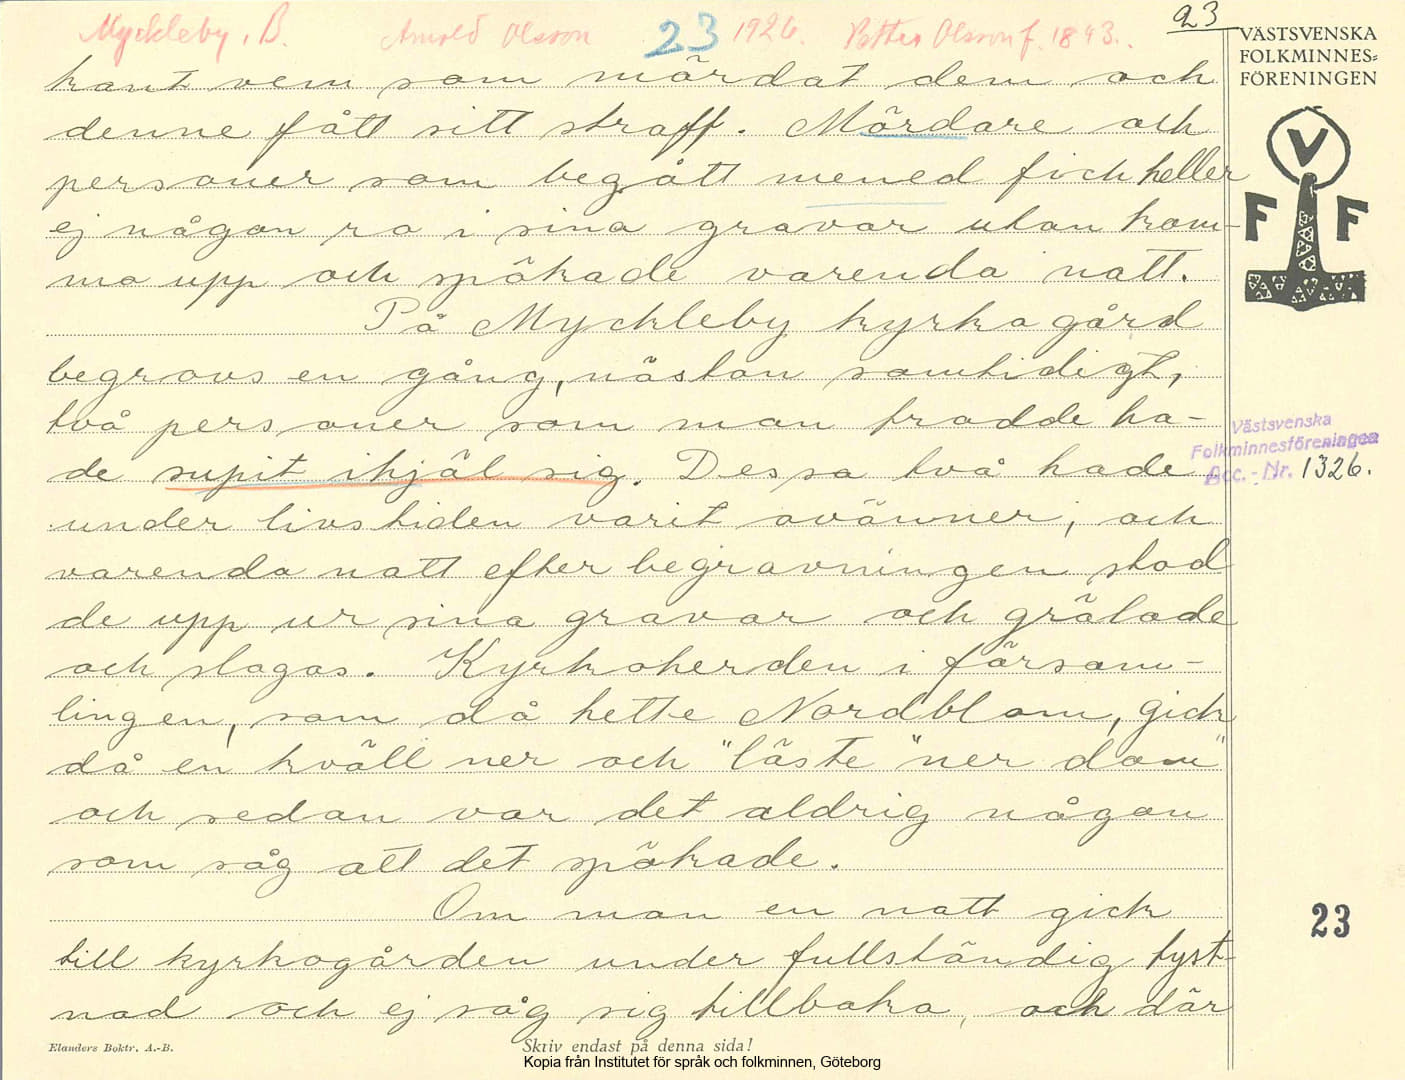 Myckleby, B. Arnold Olsson 23 1926. Petter Olsson f. 1843.
23
VÄSTSVENSKA
FOLKMINNES-
FÖRENINGEN
V
F F
kant vem som mördat dem och
denne fått sitt straff. Mördare och
personer som begått mened fick heller
ej någon ro i sina gravar utan kom-
mo upp och spökade varenda natt.
På Myckleby kyrkogård
begravs en gång, nästan samtidigt,
två personer som man trodde ha-
de supit ihjäl sig. Dessa två hade
Västsvenska
Folkminnesföreningen
Acc. - Nr. 1326.
under livstiden varit ovänner, och
varenda natt efter begravningen stod
de upp ur sina gravar och grälade
och slogos. Kyrkoherden i försam-
lingen, som då hette Nordblom, gick
då en kväll ner och "läste" ner dom"
och sedan var det aldrig någon
som såg att det spökade.
Om man en natt gick
23
till kyrkogården under fullständig tyst-
nad och ej såg sig tillbaka, och där
Elanders Boktr. A.-B.
Skriv endast på denna sida!
Kopia från Institutet för språk och folkminnen, Göteborg